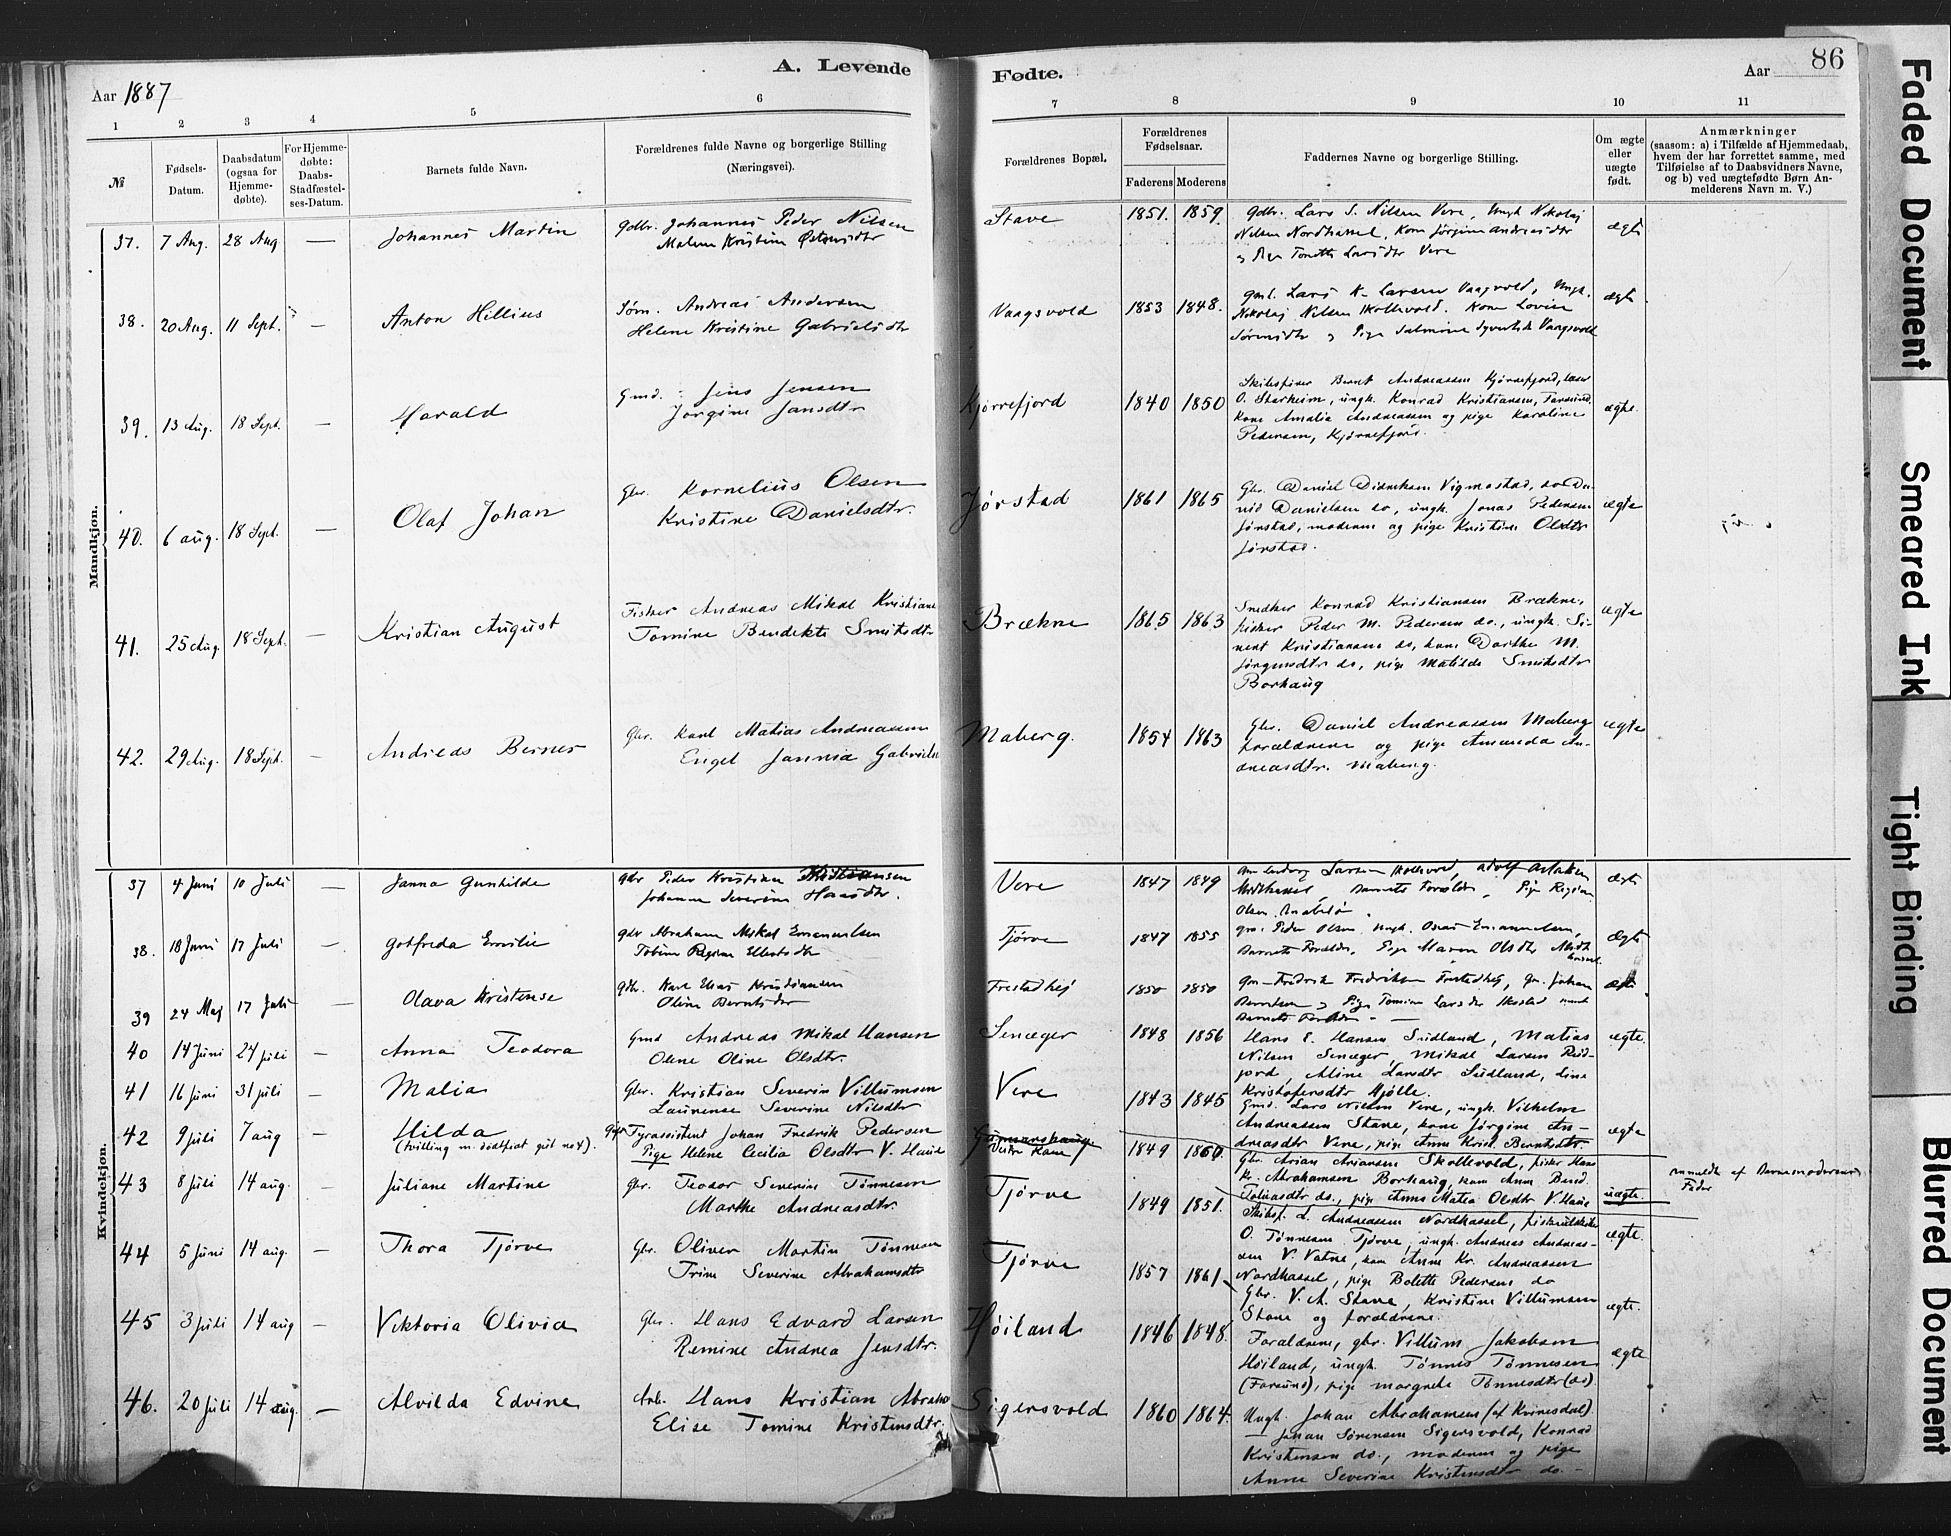 A. Levende Fødte.
86
Aar 1887
Aar
1 2 3 4 5 6 7 8 9 10 11
№
Fødsels-Datum.
Daabsdatum (ogsaa for Hjemme-døbte).
For Hjemme-døbte: Daabs-Stadfæstel-ses-Datum.
Barnets fulde Navn.
Forældrenes fulde Navne og borgerlige Stilling (Næringsvei).
Forældrenes Bopæl.
Forældrenes Fødselsaar.
Faderens Moderens
Faddernes Navne og borgerlige Stilling.
Om ægte eller uægte født.
Anmærkninger
(saasom: a) i Tilfælde af Hjemmedaab,
hvem der har forrettet samme, med
Tilføielse af to Daabsvidners Navne,
og b) ved uægtefødte Børn An-
melderens Navn m. V.)
Mandkjøn.
37. 7 Aug. 28 Aug — Johannes Martin gdbr. Johannes Peder Nilsen Stave 1851. 1859. gdbr. Lars S. Nilsen Vere, Ungk Nikolaj ægte
Nilsen Nordhassel, Kone Jørgine Andreasdtr
og Pige Tonette Larsdtr Vere
38. 20 Aug. 11 Sept. — Anton Hillius Andreas Andersen Vaagsvold 1853 1848. Lars K. Larsen Vaagsvold, Ungk. ægte
Helene Kristine Gabrielsdtr Nikolaj Nilsen Kone Lovise
Sørensdtr og Pige Vaagsvold
39. 13 Aug. 18 Sept. — Harald Gmd. Jens Jensen Kjørrefjord 1840 1850 Bernt Andreassen Kjørrefjord, ægte.
Jørgine Jansdtr O. Starheim, ungk. Konrad Kristiansen,
Kone Amalia Andreassen og pige Karoline
Pedersen, Kjørrefjord.
40. 6 aug. 18 Sept. — Olaf Johan Gbr. Kornelius Olsen Jørstad 1861 1865 Gbr. Daniel Vigmostad, ægte
Kristine Danielsdtr. Danielsen do, ungk. Jonas Pedersen
Jørstad, moderen og pige Kristine Olsdtr
Jørstad.
41. 25 Aug. 18 Sept. — Kristian August Fisker Andreas Mikal Kristians Brækne 1865 1863 Snedker Konrad Kristiansen Brækne, ægte
Tomine Bendekte fisker Peder M. Pedersen do., ungk. Si-
vert Kristiansen do, kone Dorthe M.
Jørgensdtr do, pige Matilde
Borhaug
42. 29 Aug. 18 Sept. — Andreas Berner Gbr. Karl Matias Andreassen Maberg. 1854 1863 Gbr. Daniel Andreassen Maberg ægte
Engel Jannia Gabriels forældrene og pige Amanda An-
dreasdtr. Maberg.
Kvindekjøn.
37 4 Juni 10 Juli — Janna Gunhilde gdbr Peder Kristian Vere 1847 1849 Ludvig Larsen Adolf ægte
Johanne Severine Hansdtr. Barnets Forældre, Pige Regine
Olsen
38. 18 Juni 17 Juli — Gotfreda Emilie gdbr Abraham Mikal Emanuelsen Tjørve 1847 1855 Peder Olsen Ungk. Oskar Emanuelsen, ægte
Tobine Regine Barnets Forældre, Pige Maren Olsdtr
39 24 Maj 17 Juli — Olava Kristense gdbr. Karl Elias Kristiansen Frestadhej 1850 1850 Fredrik Fredriksen Frestadhej, Johan
Oline Berntsdtr Berntsen og Pige Tomine Larsdtr
Barnets Forældre —
40 14 Juni 24 juli — Anna Teodora Gmd Andreas Mikal Hansen Senæger 1848 1856 Hans E. Hansen Sudland, Matias ægte.
Olene Oline Olsdtr. Nilsen Senæger, Mikal Larsen
Aline Larsdtr Sudland, Lina
Kristofersdtr Mjölle.
41 16 juni 31 juli — Malia Gbr. Kristian Severin Villumsen Vere 1843 1845 Gmd. Lars Nilsen Vere, ungk. Vilhelm
Laurense Severine Nilsdtr Andreassen Stave, kone Jørgine An- ægte
dreasdtr Vere, pige Anne Krist. Berntsdtr.
42 9 juli 7 aug — Hilda Fyrassistent Johan Fredrik Pedersen 1849 1860. Gbr. Arian Ariansen Skollevold, fisker Hans
(tvilling m. dødfødt gut no 4). Pige Helene Cecilia Olsdtr V. Hauge Kr. Abrahamsen Borhaug, kone Anne Bend.
Tobiasdtr do., pige Anne Matea Olsdtr V. Hauge uægte. anmeldt af Barnemoderens Fader
43 8 juli 14 aug. — Juliane Martine Gbr. Teodor Severin Tønnesen Tjørve 1849 1851. L. Andreassen Nordhassel,
Marthe Andreasdtr. O. Tønnesen Tjørve, ungk. Andreas Andreas- ægte.
sen V. Vatne, kone Anne Kr. Andreassen
Nordhassel, pige Bolette Pedersen do
44 5 juni 14 aug. — Thora Tjørve Gbr. Oliver Martin Tønnesen Tjørve 1857 1861 Gbr. V. A. Stave, Kristine Villumsen
Trine Severine Abrahamsdtr Stave og forældrene. ægte.
45 3 juli 14 aug — Viktoria Olivia Gbr. Hans Edvard Larsen Høiland 1846 1848. Forældrene, gbr. Villum Jakobsen
Remine Andrea Jensdtr. Høiland, ungk. Tønnes Tønnesen ægte
(Farsund), pige Margrete Tønnesdtr (do).
46. 20 juli 14 aug. — Alvilda Edvine Arb. Hans Kristian Abraha Sigersvold 1860 1864. Ungk. Johan Abrahamsen (af Kvinesdal).
Elise Tomine Kristensdtr. — Johan Sørensen Sigersvold, Konrad
Kristensen do., moderen og pige
Anne Severine Kristensdtr do. —
Faded Document
Smeared Ink
Tight Binding
Blurred Document